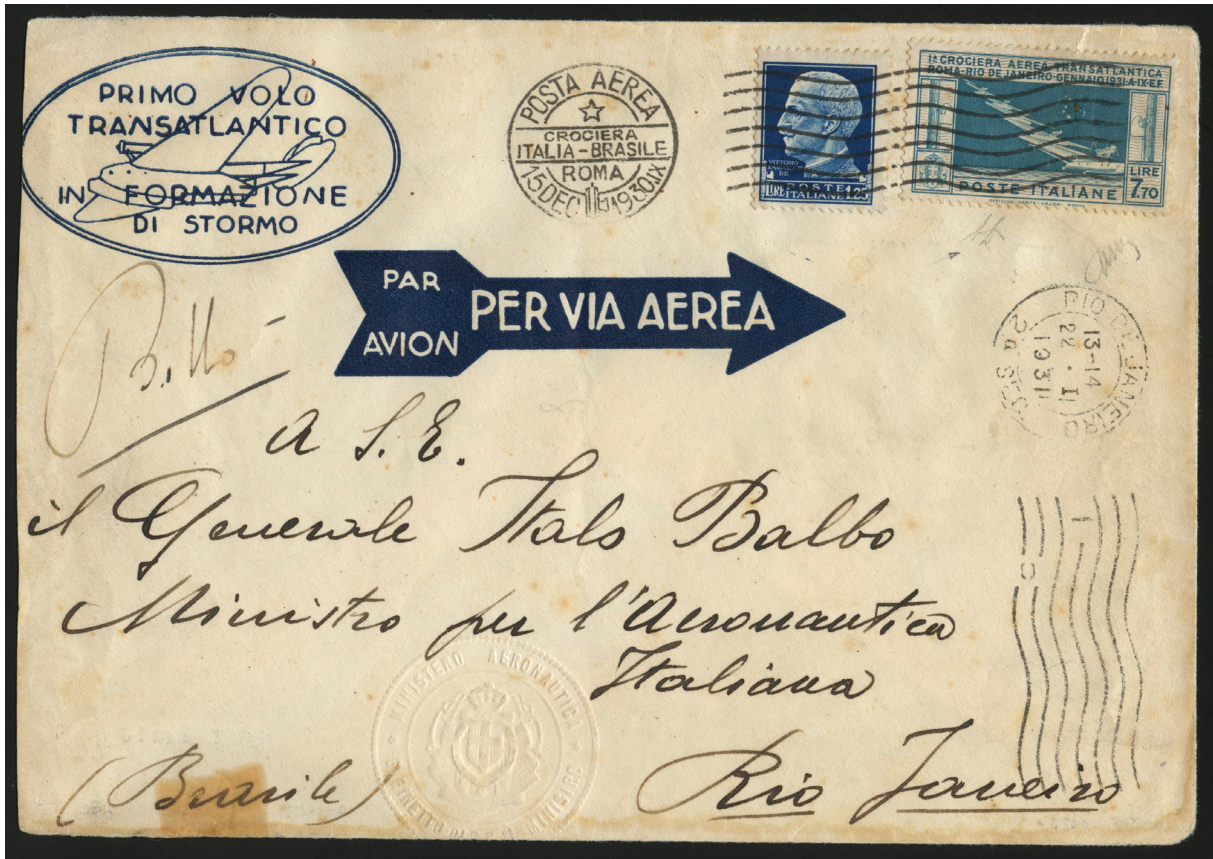 PRIMO VOLO
TRANSATLANTICO
IN FORMAZIONE
DI STORMO
POSTA AEREA
CROCIERA
ITALIA-BRASILE
ROMA
15 DEC 1930 IX
VITTORIO
DE
POSTE
LIRE ITALIANE 1.25
Iª CROCIERA AEREA TRANSATLANTICA
ROMA-RIO DE JANEIRO-GENNAIO 1931-A-IX-E.F.
LIRE
7,70
POSTE ITALIANE
PAR
AVION
PER VIA AEREA
RIO DE JANEIRO
13-14
22 · I
1931
2a SEC
A S. E.
il Generale Italo Balbo
Ministro per l'Aeronautica
Italiana
Rio Janeiro
(Brasile)
MINISTERO AERONAUTICA
GABINETTO DI S.E. IL MINISTRO